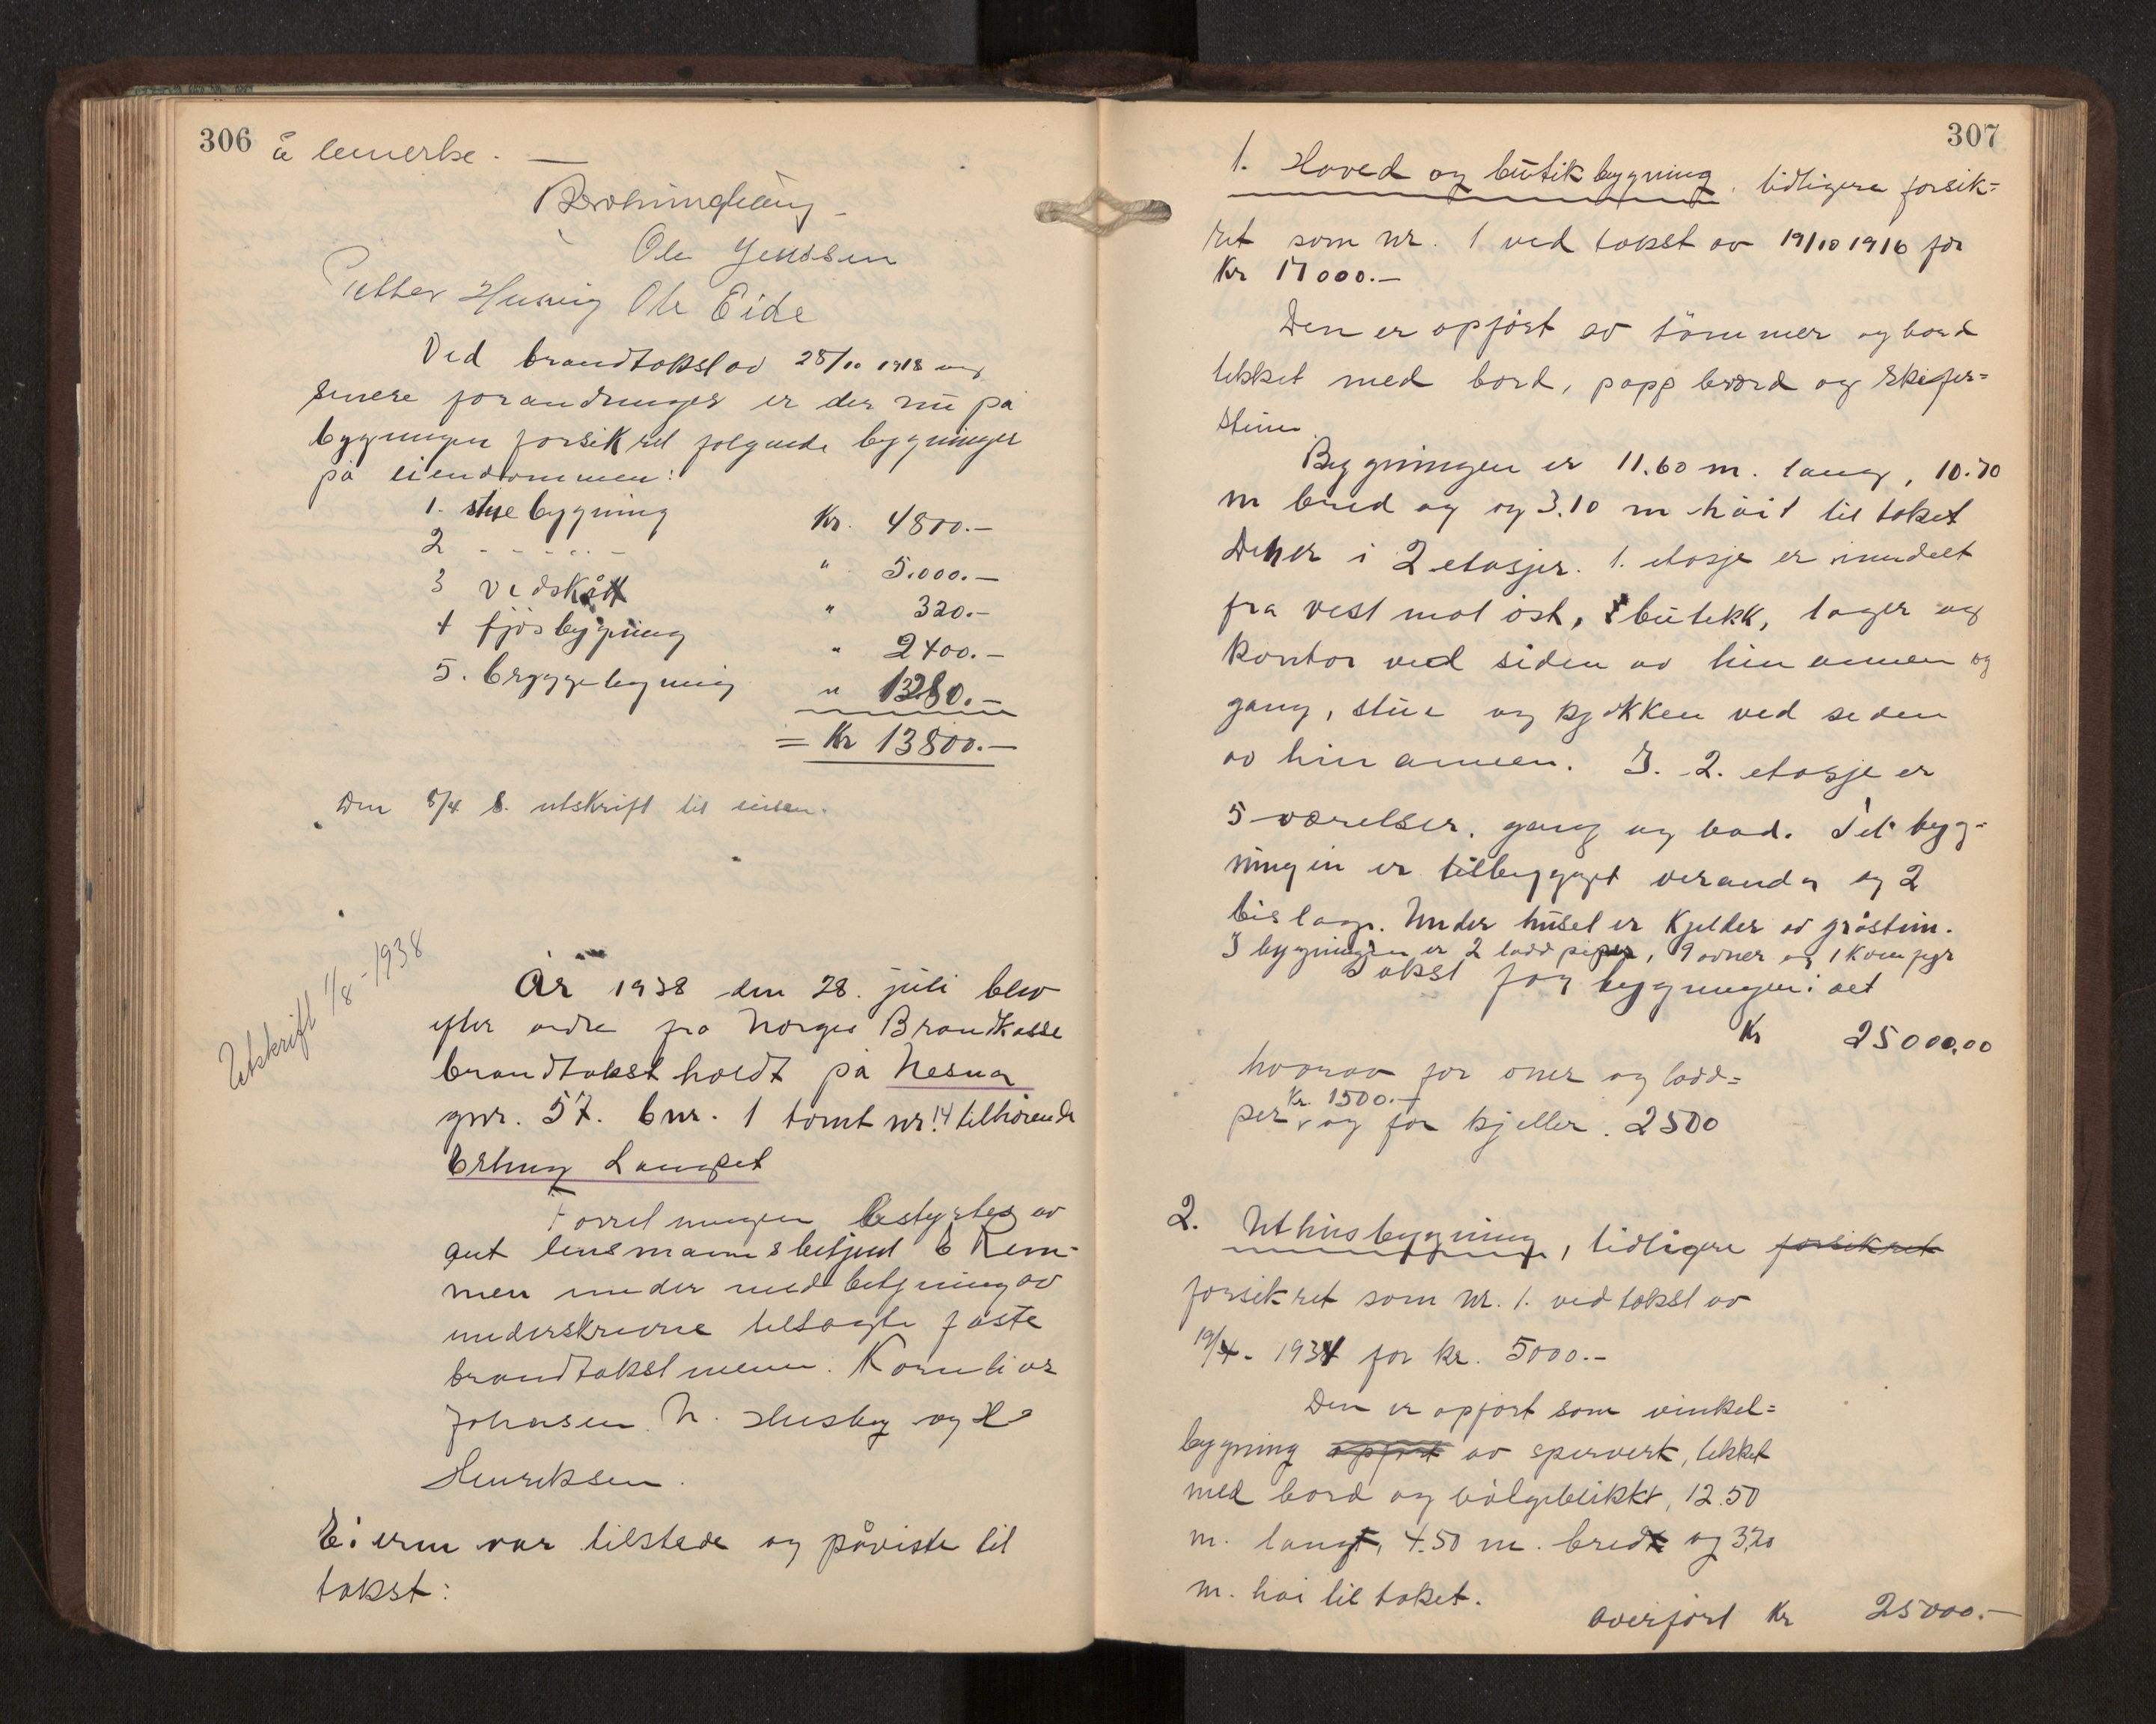 306
å bemerke. —
Ole Jenssen
Petter Husvig Ole Eide
Ved brandtakst av 28/10 1918 og
senere forandringer er der nu på
bygningen forsikret følgende bygninger
på eiendommen:
1. stuebygning Kr. 4800.—
2 - - - - - " 5.000.—
3 Vedskått " 320.—
4 fjøsbygning " 2400.—
5. bryggebygning " 1280.—
= Kr 13800.—
Den 8/4 S. utskrift til eieren.
Utskrift 1/8-1938
År 1938 den 28. juli blev
efter ordre fra Norges Brandkasse
brandtakst holdt på Nesna
gnr. 57. bnr. 1 tomt nr. 14 tilhørende
Erling Langset
Forretningen bestyrtes av
aut lensmannsbetjent E Rem-
men under medbetjening av
underskrevne tilsagte faste
brandtakstmenn. Kornelius
Johansen N. Husby og H
Henriksen.
Eieren var tilstede og påviste til
takst:
307
1. Hoved og butikbygning, tidligere forsik=
ret som nr. 1 ved takst av 19/10 1916 for
Kr 17000.—
Den er opført av tømmer og bord
tekket med bord, papp bord og skifer=
stein.
Bygningen er 11.60 m. lang, 10.70
m bred og og 3.10 m høit til taket
Den er i 2 etasjer. 1. etasje er inndelt
fra vest mot øst, butikk, lager og
kontor ved siden av hinannen og
gang, stue og kjøkken ved siden
av hinannen. I. 2. etasje er
5 værelser, gang og bad. Til byg=
ningen er tilbygget veranda og 2
bislag. Under huset er kjelder av gråstein.
I bygningen er 2 loddpiper, 9 ovner og 1 komfyr
Takst for bygningen: aet
Kr 25000,00
hvorav for ovner og lodd=
Kr. 1500.—
per, og for kjeller. 2500
2. Uthusbygning, tidligere forsikret
forsikret som nr. 1. ved takst av
19/4- 1934 for kr. 5000.-
Den er opført som vinkel=
bygning opført av sperverk, tekket
med bord og bølgeblikk, 12.50
m. langt, 4.50 m. bredt og 3,20
m. høi til taket.
overført Kr 25000.—